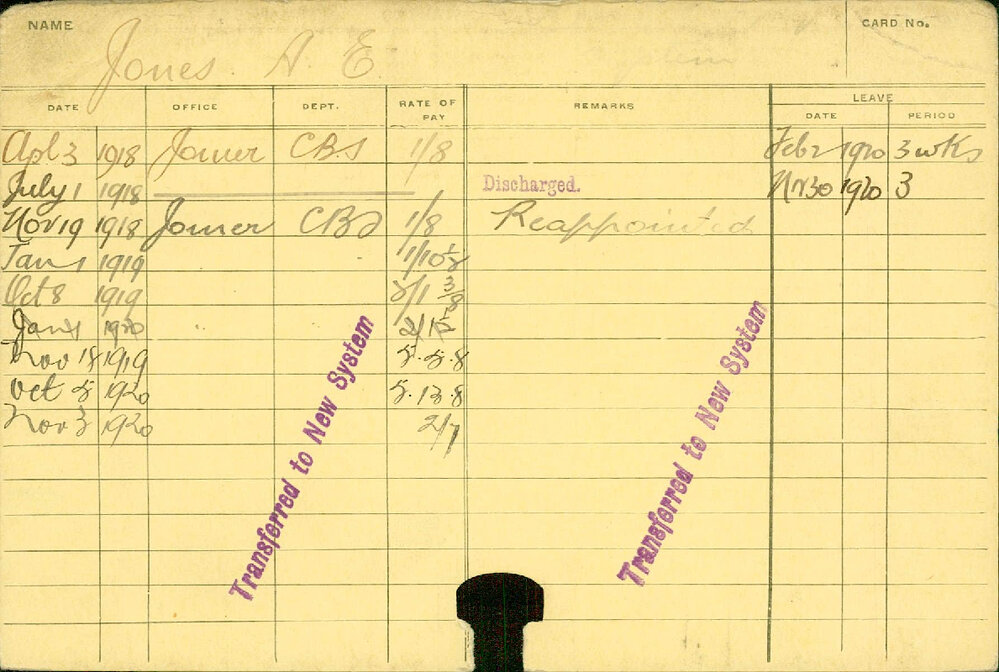 NAME CARD No.
Jones. A. E.
DATE OFFICE DEPT. RATE OF PAY REMARKS LEAVE
DATE PERIOD
Apl 3 1918 Joiner CBS 1/8 Feb 2 1920 3 wks
July 1 1918 Discharged. Nv 30 1920 3
Nov 19 1918 Joiner CBS 1/8 Reappointed
Jan 1 1919 1/10½
Oct 8 1919
Jan 1 1920
Nov 18 1919 5.5.8
Oct 1920 5.13.8
Nov 3 1920 2/7
Transferred to New System
Transferred to New System